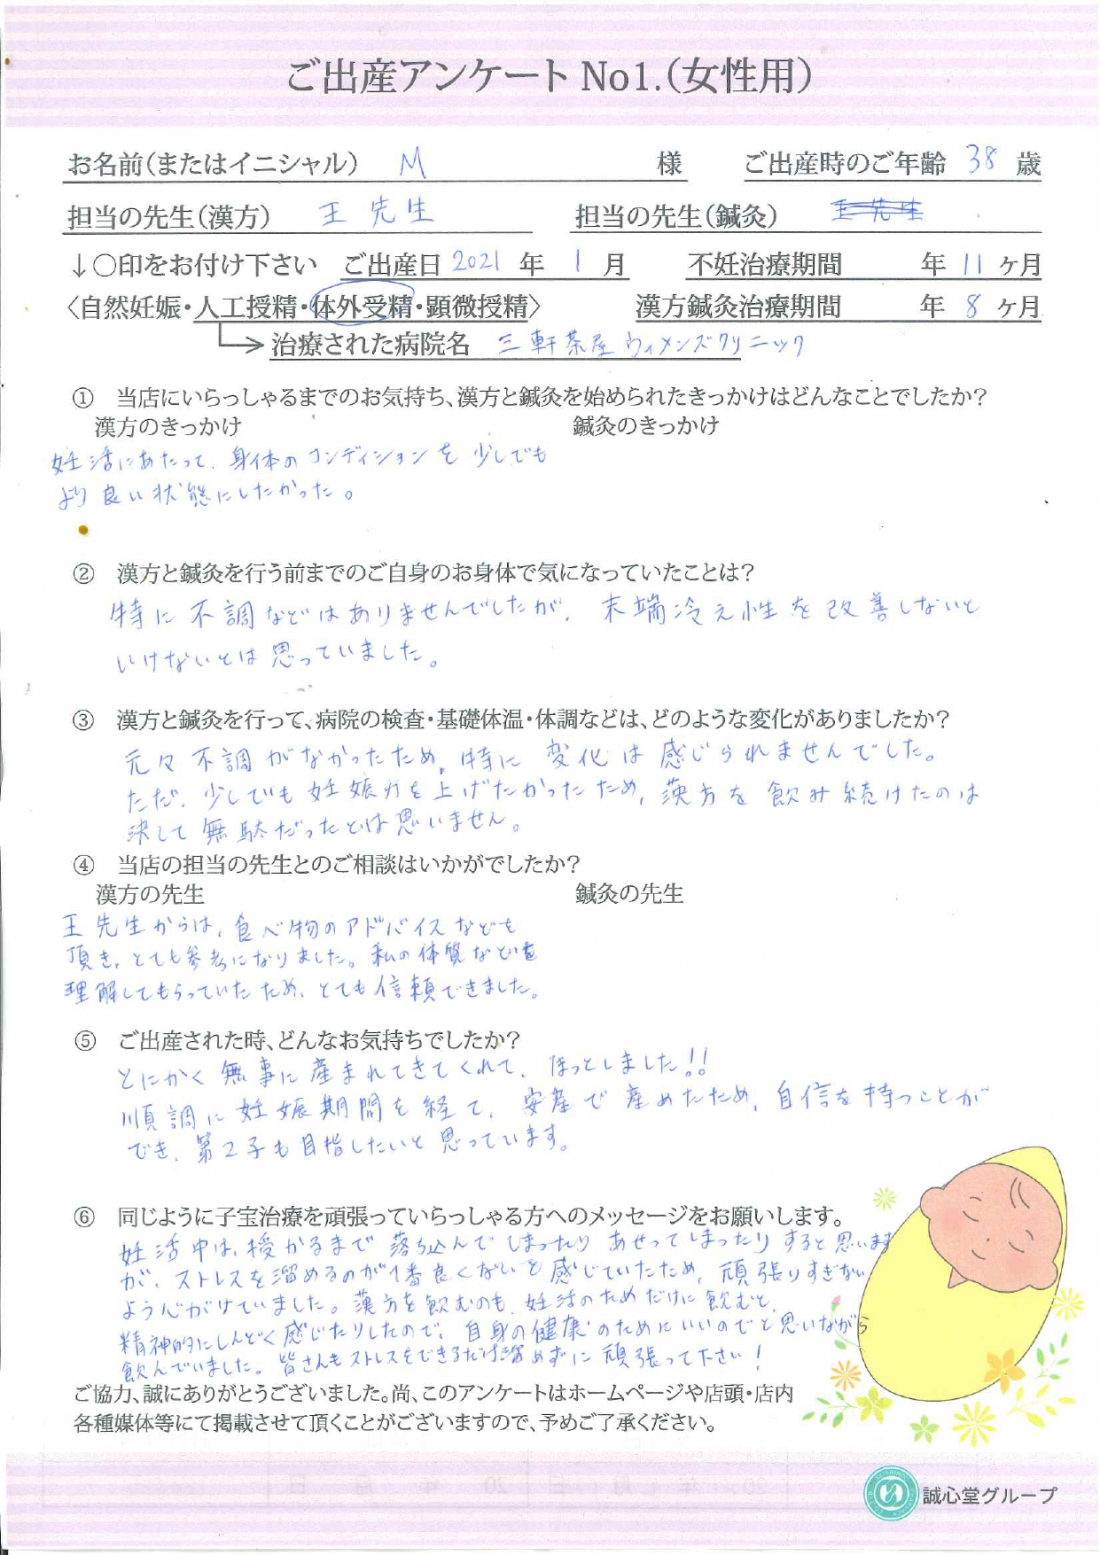 ご出産アンケートNo1.(女性用)
お名前(またはイニシャル) M 様 ご出産時のご年齢 38 歳
担当の先生(漢方) 王先生 担当の先生(鍼灸) 王先生
↓○印をお付け下さい ご出産日 2021 年 1 月 不妊治療期間 年 11 ヶ月
〈自然妊娠・人工授精・体外受精・顕微授精〉 漢方鍼灸治療期間 年 8 ヶ月
治療された病院名 三軒茶屋ウィメンズクリニック
① 当店にいらっしゃるまでのお気持ち、漢方と鍼灸を始められたきっかけはどんなことでしたか?
漢方のきっかけ 鍼灸のきっかけ
妊活にあたって、身体のコンディションを少しでも
より良い状態にしたかった。
② 漢方と鍼灸を行う前までのご自身のお身体で気になっていたことは?
特に不調などはありませんでしたが、末端冷え性を改善しないと
いけないとは思っていました。
③ 漢方と鍼灸を行って、病院の検査・基礎体温・体調などは、どのような変化がありましたか?
元々不調がなかったため、特に変化は感じられませんでした。
ただ、少しでも妊娠力を上げたかったため、漢方を飲み続けたのは
決して無駄だったとは思いません。
④ 当店の担当の先生とのご相談はいかがでしたか?
漢方の先生 鍼灸の先生
王先生からは、食べ物のアドバイスなども
頂き、とても参考になりました。私の体質などを
理解してもらっていたため、とても信頼できました。
⑤ ご出産された時、どんなお気持ちでしたか?
とにかく無事に産まれてきてくれて、ほっとしました!!
順調に妊娠期間を経て、安産で産めたため、自信を持つことが
でき、第2子も目指したいと思っています。
⑥ 同じように子宝治療を頑張っていらっしゃる方へのメッセージをお願いします。
妊活中は、授かるまで落ち込んでしまったりあせってしまったりすると思います
が、ストレスを溜めるのが1番良くないと感じていたため、頑張りすぎない
よう心がけていました。漢方を飲むのも、妊活のためだけに飲むと、
精神的にしんどく感じたりしたので、自身の健康のためにいいのでと思いながら
飲んでいました。皆さんもストレスをできるだけ溜めずに頑張って下さい!
ご協力、誠にありがとうございました。尚、このアンケートはホームページや店頭・店内
各種媒体等にて掲載させて頂くことがございますので、予めご了承ください。
誠心堂グループ